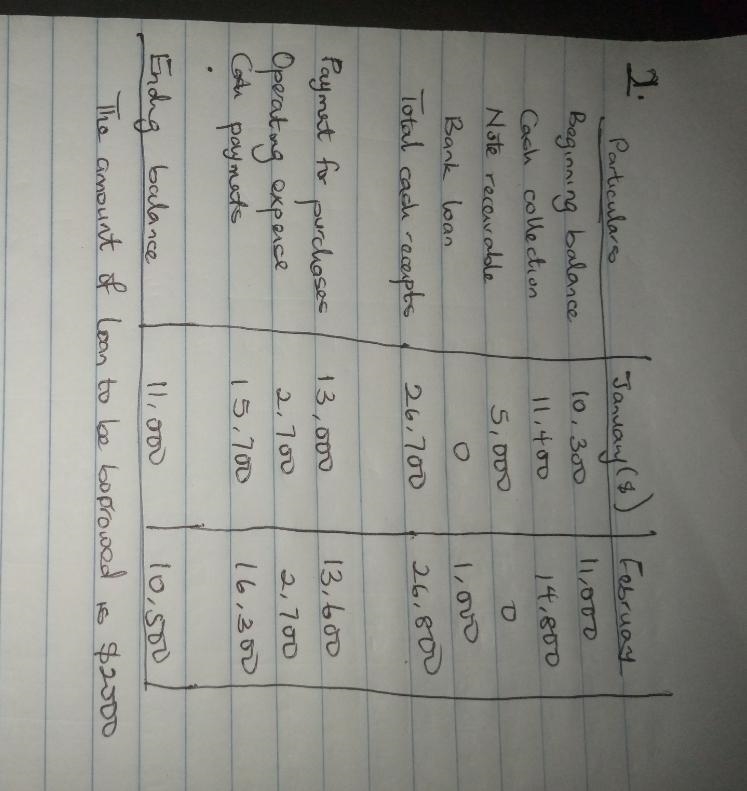 2.
Particulars January ($) February
Beginning balance 10,300 11,000
Cash collection 11,400 14,800
Note receivable 5,000 0
Bank loan 0 1,000
Total cash receipts 26,700 26,800
Payment for purchases 13,000 13,600
Operating expense 2,700 2,700
Cash payments 15,700 16,300
Ending balance 11,000 10,500
The amount of loan to be borrowed is $2000